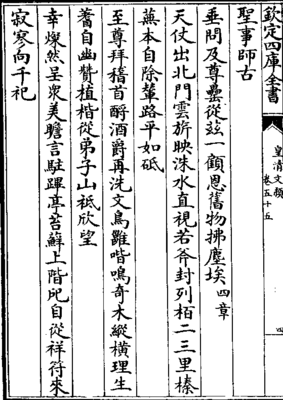 欽定四庫全書
皇清文穎
卷五十五
四
聖事師古
垂問及尊罍從茲一顧恩舊物拂塵埃四章
天仗出北門雲旂映洙水直視若斧封列栢二三里榛
蕪本自除輦路平如砥
至尊拜稽首酹酒爵再洗文鳥雖喈鳴奇木縱橫理生
蓍自幽贊植楷從弟子山祗欣望
幸燦然呈衆美瞻言駐蹕亭苔蘚上階戺自從祥符來
寂寥向千祀